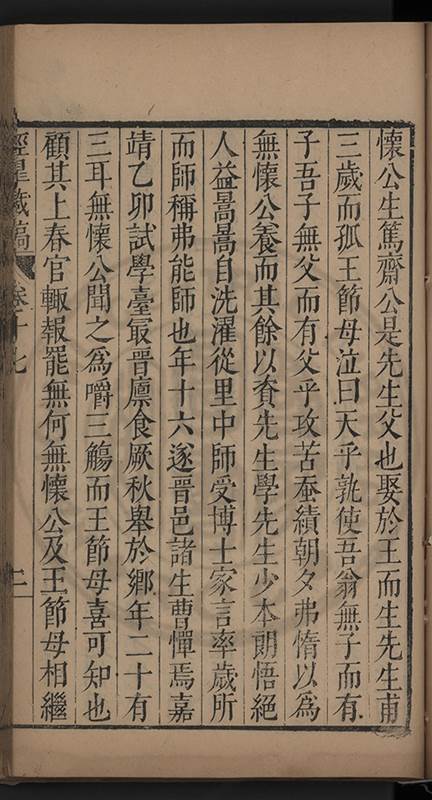 懷公生篤齋公是先生父也娶於王而生先生甫
三歲而孤王節母泣曰天乎孰使吾翁無子而有
子吾子無父而有父乎攻苦蚕績朝夕弗惰以爲
無懷公養而其餘以資先生學先生少本朗悟絕
人益暠暠自洗濯從里中師受博士家言率歲所
而師稱弗能師也年十六遂晉邑諸生曹憚焉嘉
靖乙卯試學臺㝡晉廪食厥秋舉於鄉年二十有
三耳無懷公聞之爲嚼三觴而王節母喜可知也
顧其上春官輙報罷無何無懷公及王節母相繼
藏稿 卷十七 二